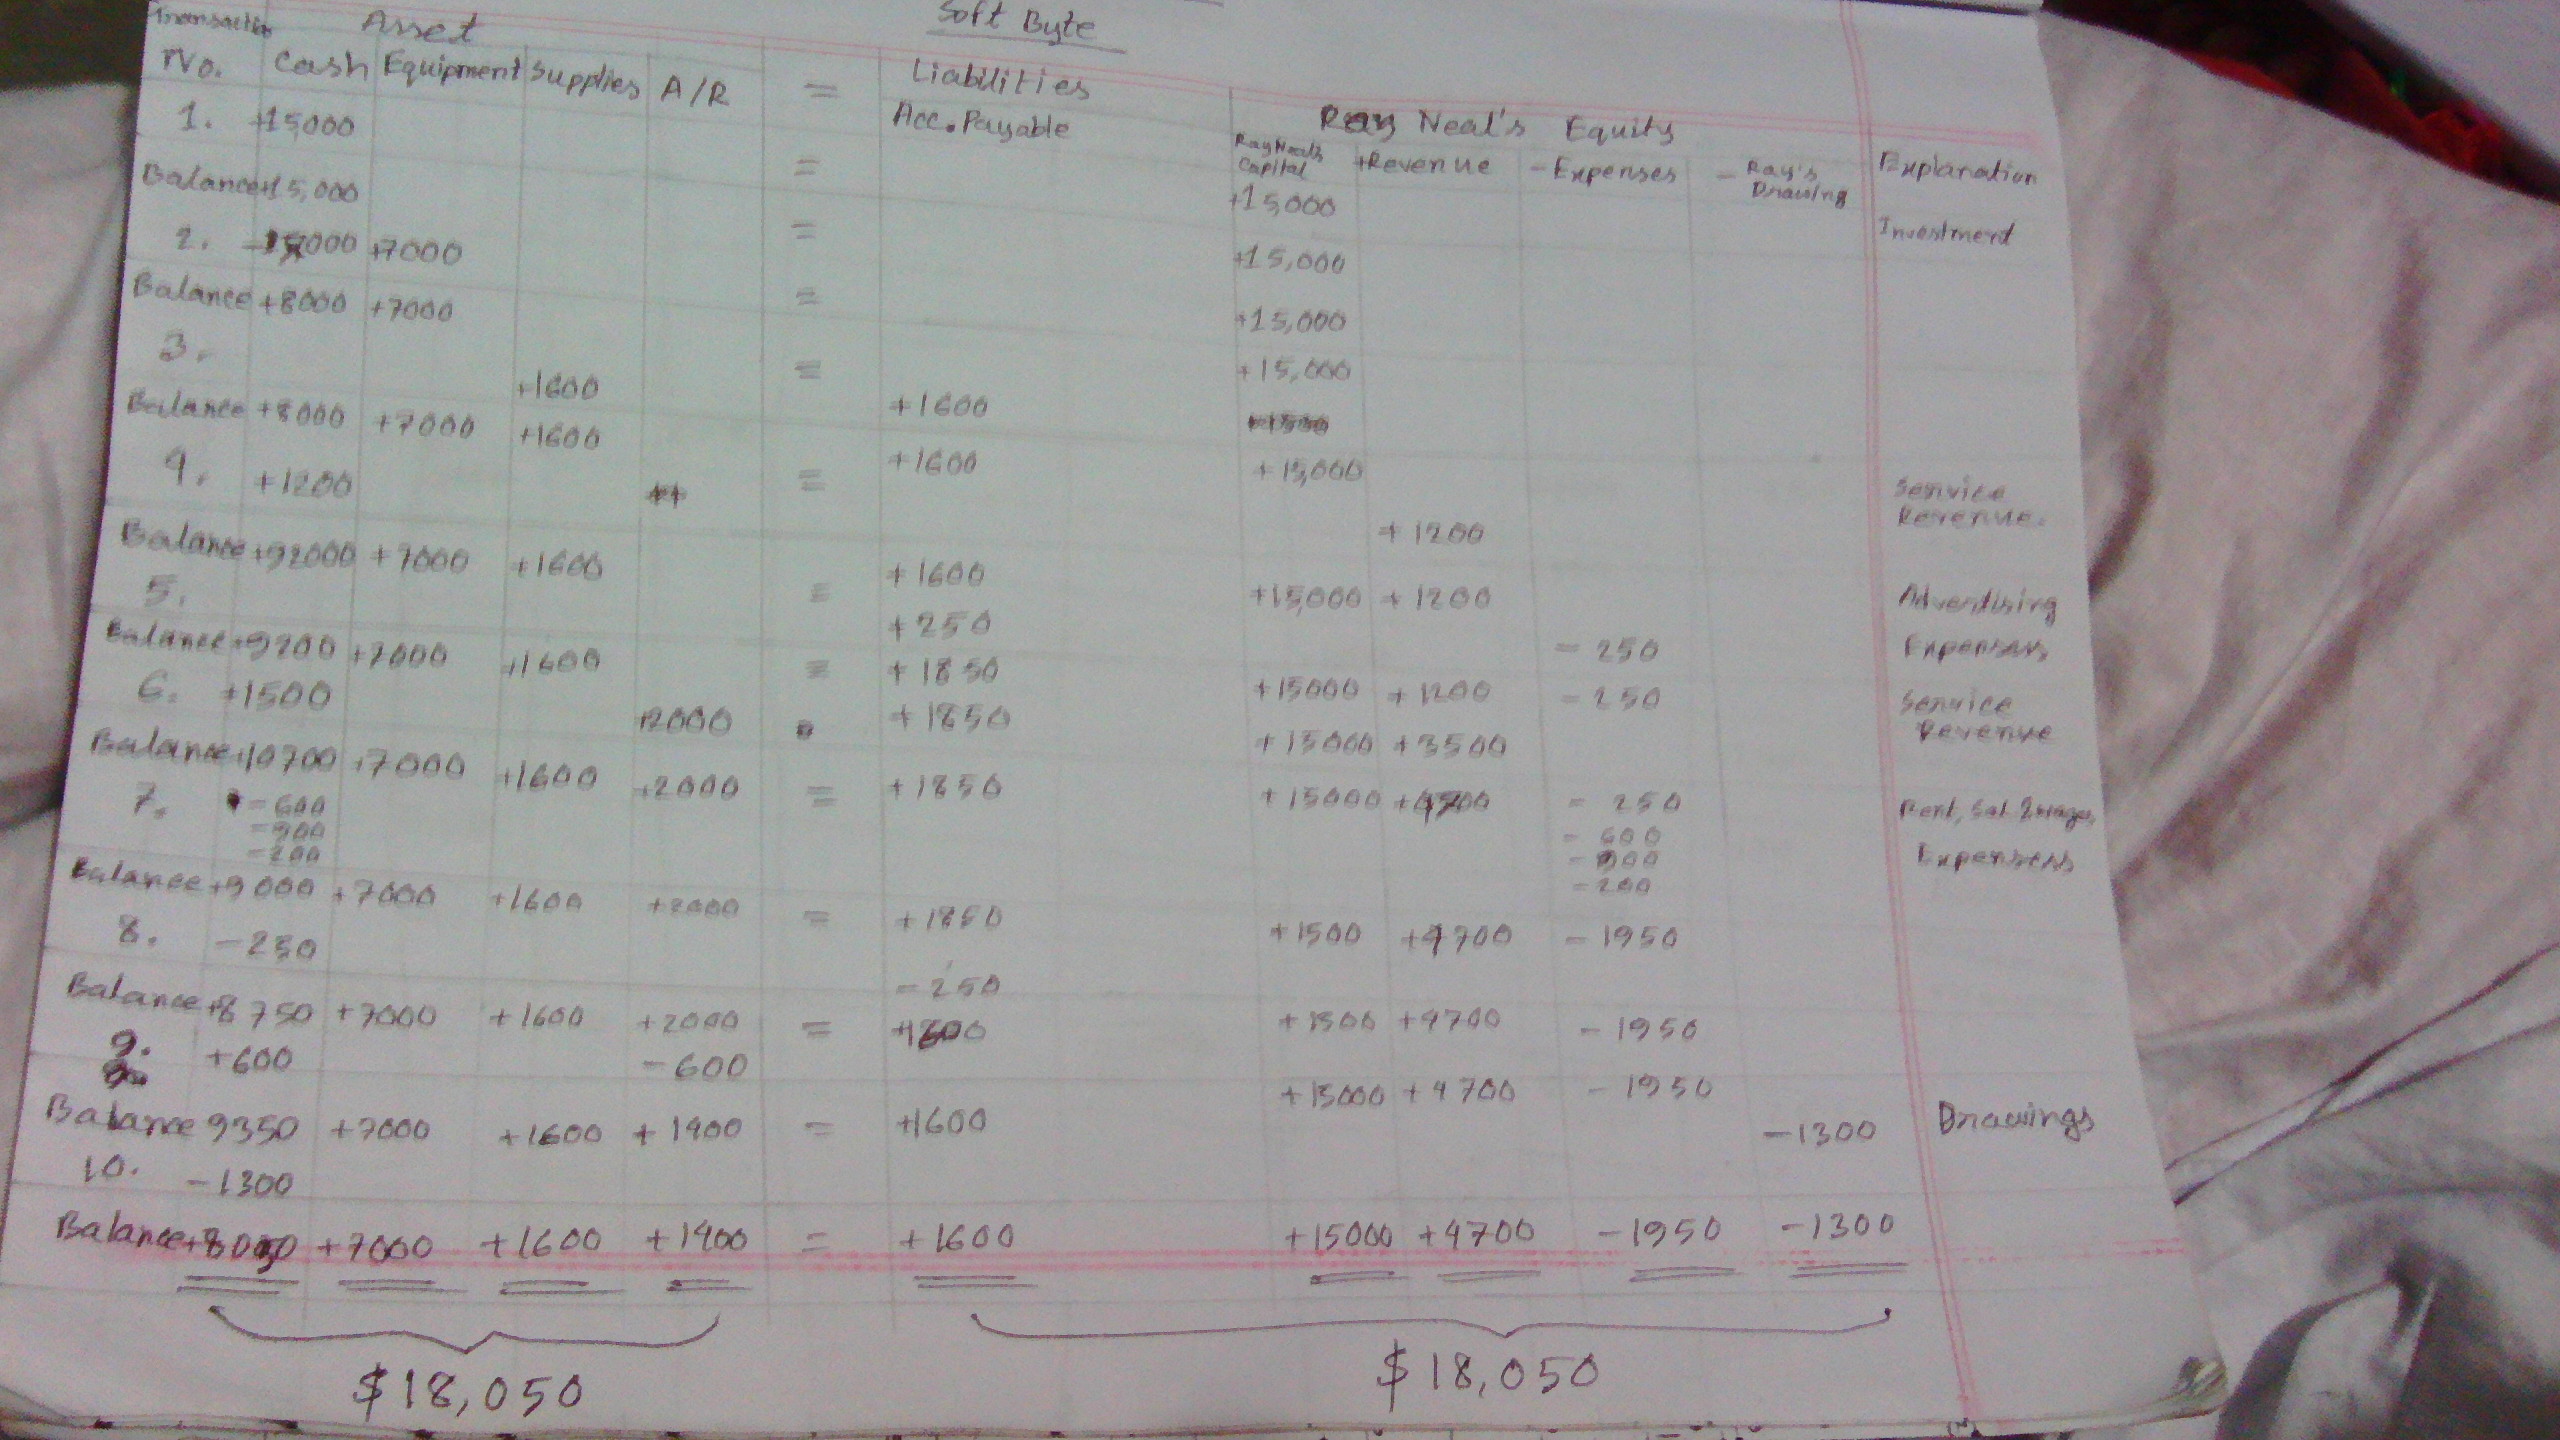 Soft Byte
Transaction Asset
No. Cash Equipment Supplies A/R = Liabilities
Acc. Payable Ray Neal's Equity
Ray Neal's Capital +Revenue - Expenses - Ray's Drawing Explanation
1. +15000 = +15,000 Investment
Balance +15,000 = +15,000
2. +7000 = +15,000
Balance +8000 +7000 = +15,000
3. +1600 +1600
Balance +8000 +7000 +1600 = +1600 +15,000
4. +1200 = +1200 Service Revenue.
Balance +92000 +7000 +1600 +1600 +15,000 +1200
5. = +250 - 250 Advertising Expenses
Balance +9200 +7000 +1600 = +1850 +15000 +1200 - 250
6. +1500 +2000 +1850 +15000 +3500 Service Revenue
Balance +10700 +7000 +1600 +2000 = +1850 +15000 +4700 - 250
7. - 600 - 600 Rent, Sal & wages,
- 900 - 900 Expensess
- 200 - 200
Balance +9000 +7000 +1600 +2000 = +1850 +1500 +4700 - 1950
8. - 250 - 250
Balance +8750 +7000 +1600 +2000 = +1600 +1500 +4700 - 1950
9. +600 - 600 +15000 +4700 - 1950
Balance 9350 +7000 +1600 +1400 = +1600
10. -1300 -1300 Drawings
Balance +8050 +7000 +1600 +1400 = +1600 +15000 +4700 -1950 -1300
$18,050 $18,050